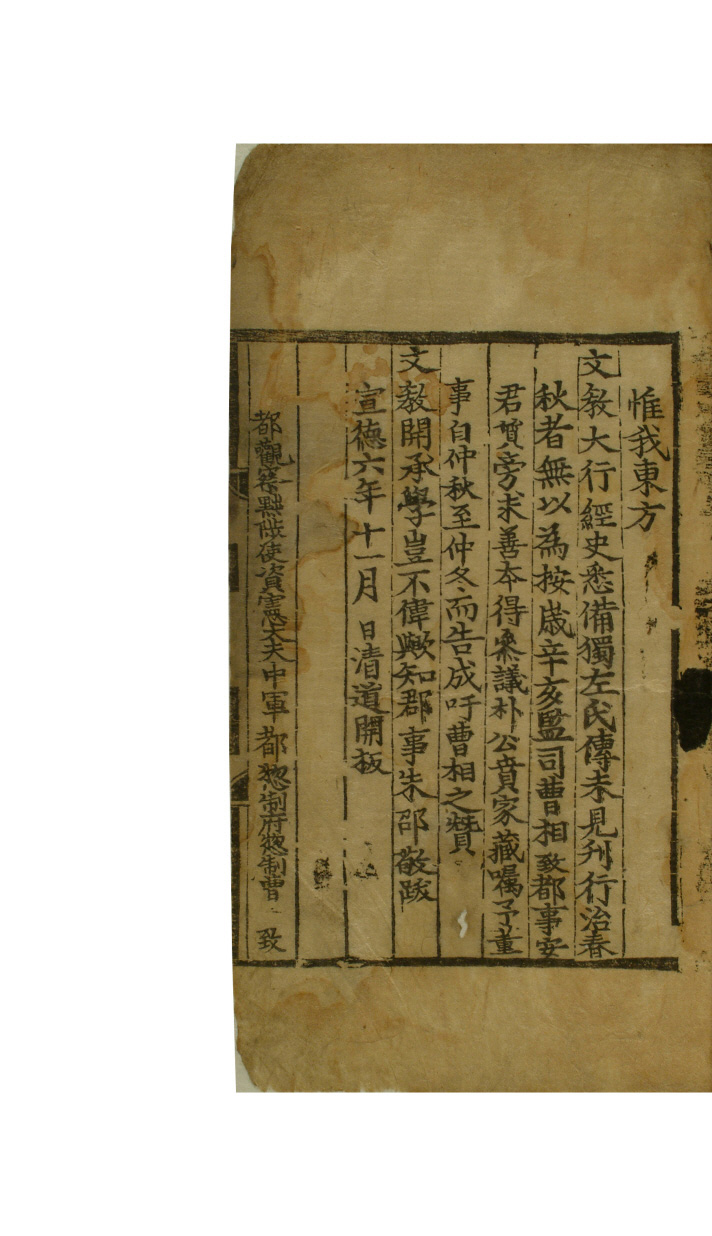 惟我東方
文教大行經史悉備獨左氏傳未見刋行治春
秋者無以為按歳辛亥監司曹相致都事安
君質旁求善夲得叅議朴公賁家藏嘱予董
事自仲秋至仲冬而告成吁曹相之賛
文教開承學豈不偉歟知郡事朱邵敬跋
宣德六年十一月 日清道開板
都觀察黜陟使資憲大夫中軍都惣制府惣制曹 致